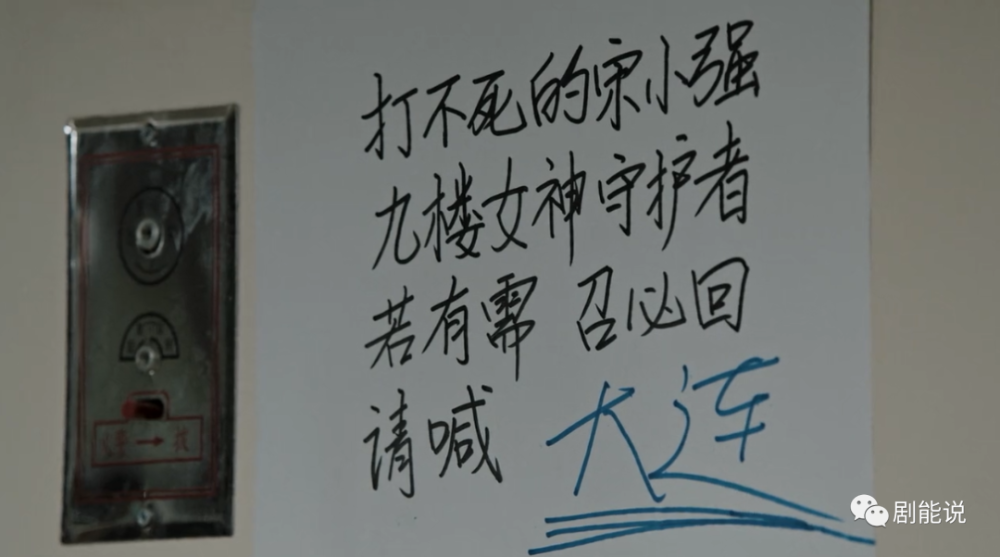 打不死的宋小强
九楼女神守护者
若有需 召必回
请喊 大连
剧能说